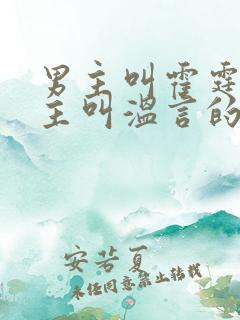 男主叫霍霆
主叫温言的
安若夏
未经同意禁止转载